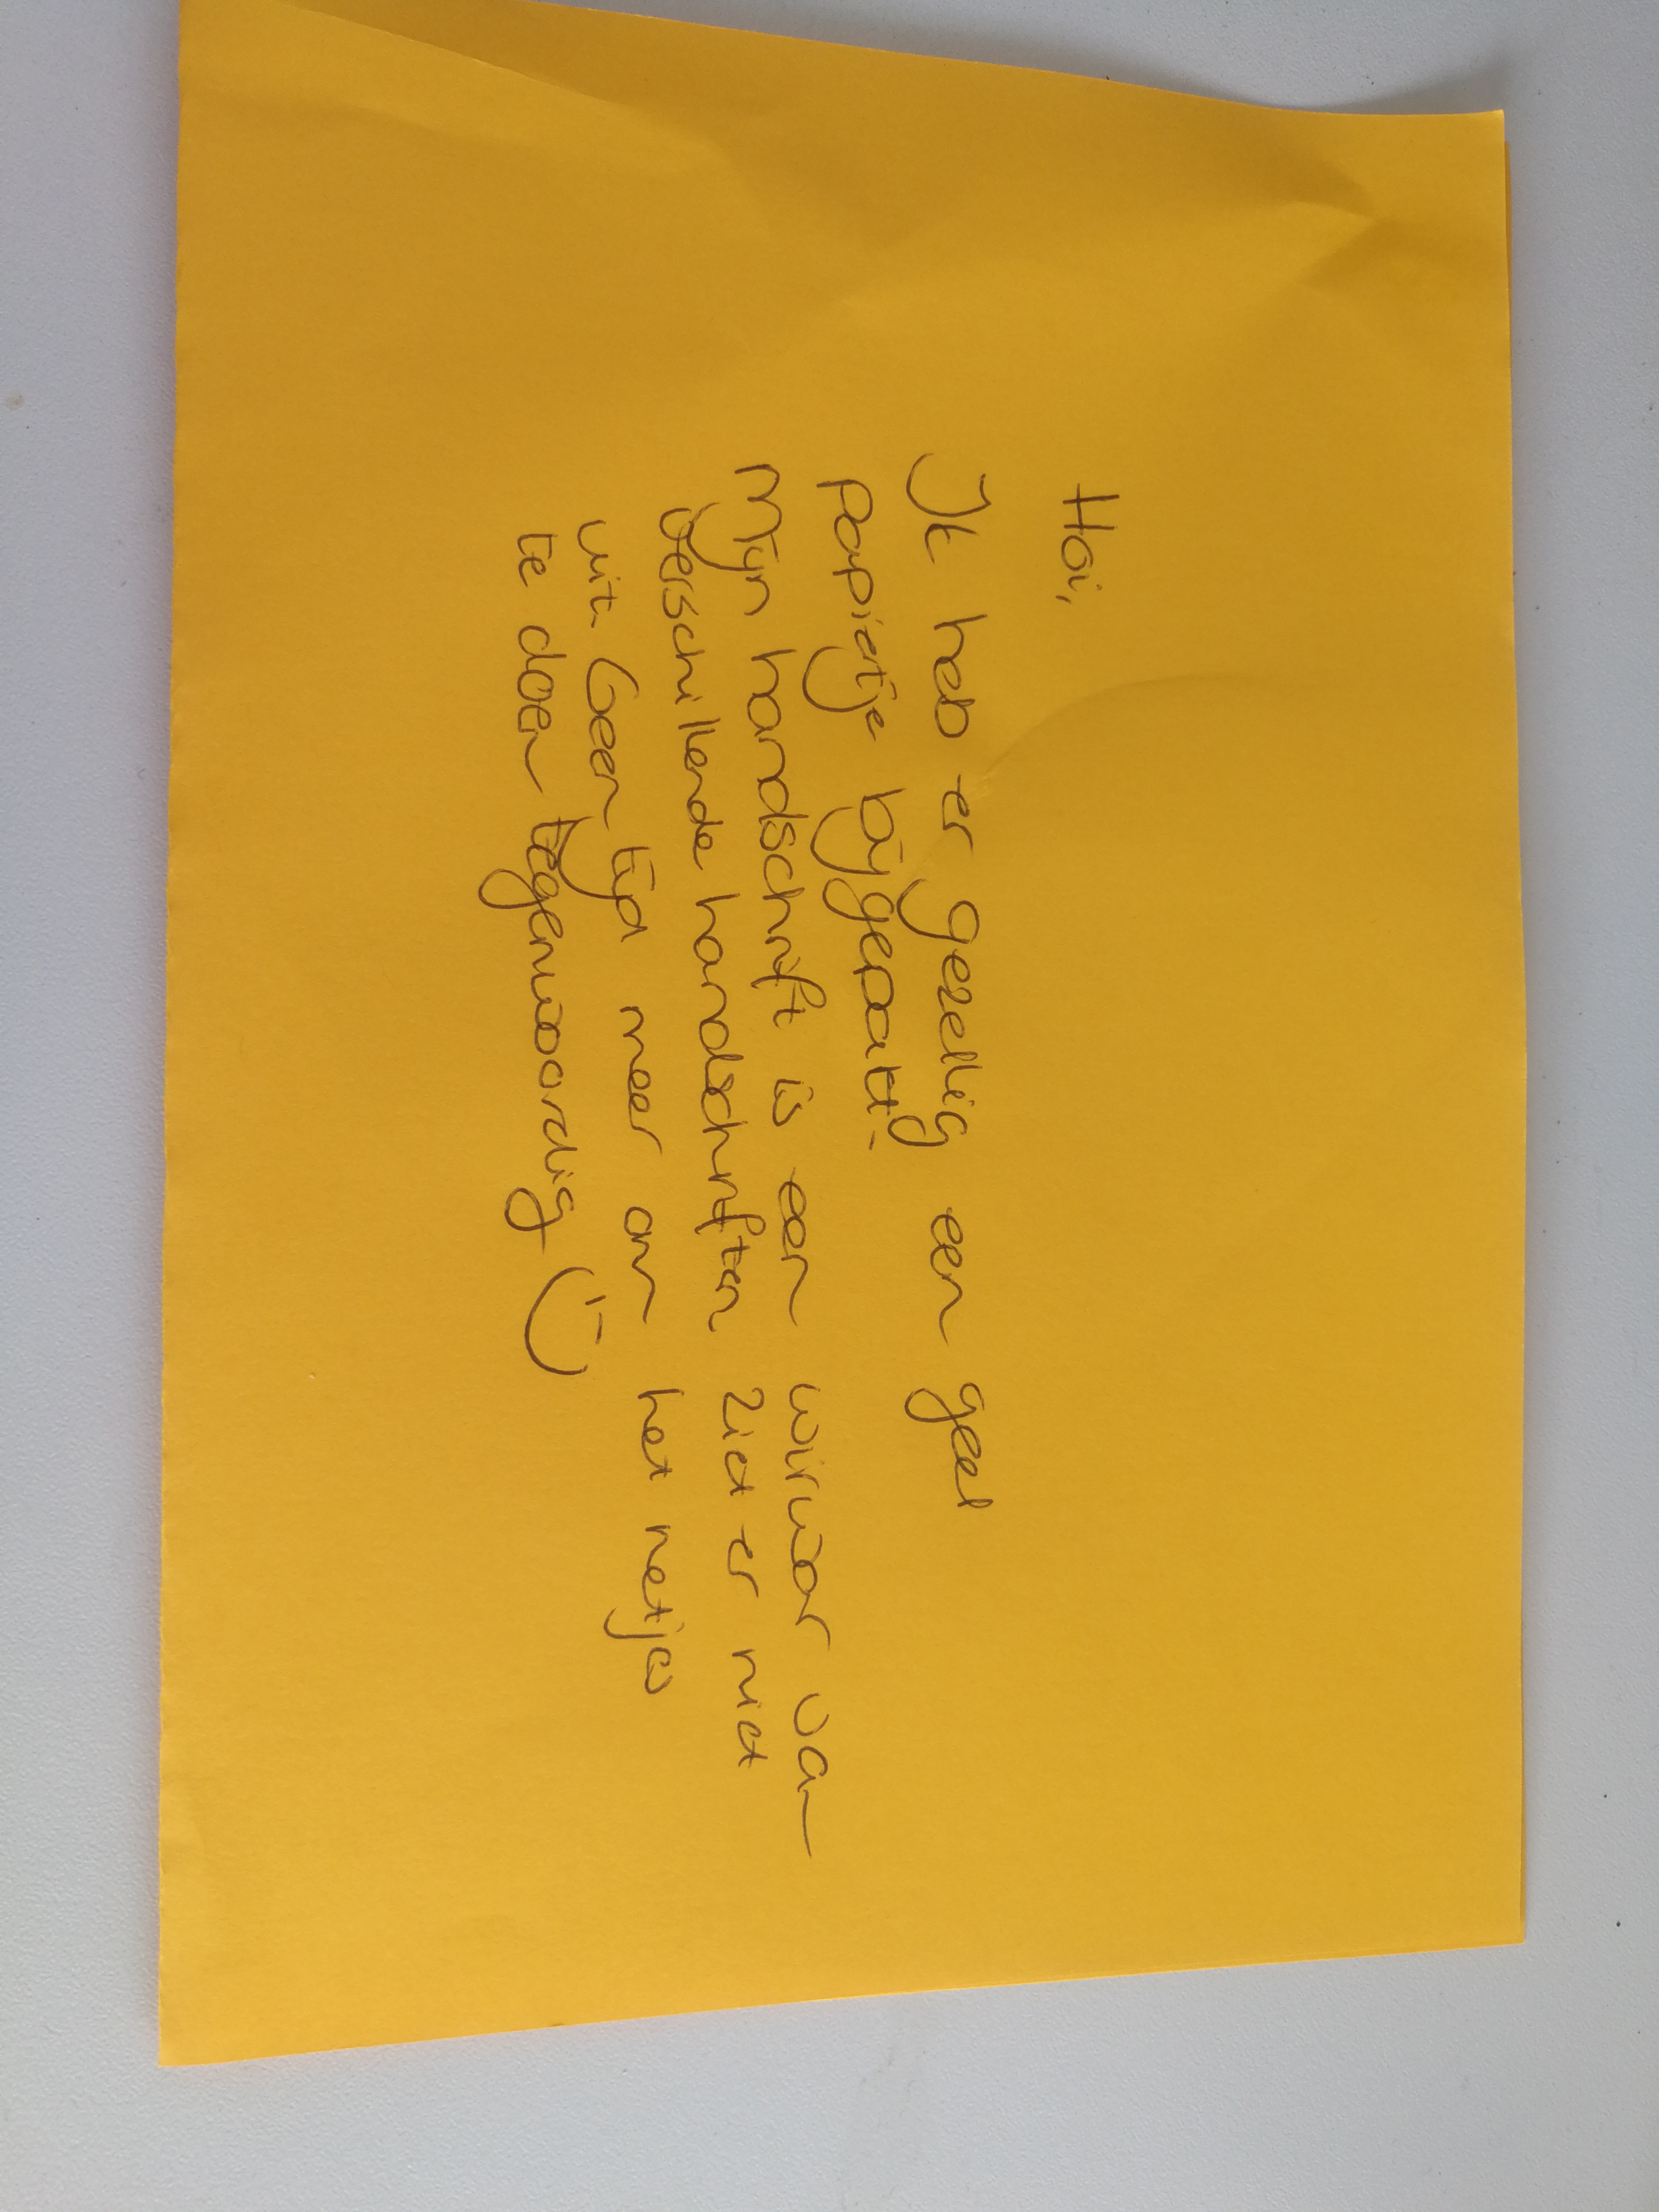 Hoi,
Ik heb er gezellig een geel
papietje bijgepakt.
Mijn handschrift is een wirwar van
verschillende handschriften ziet er niet
uit. Geen tijd meer om het netjes
te doen tegenwoordig :)